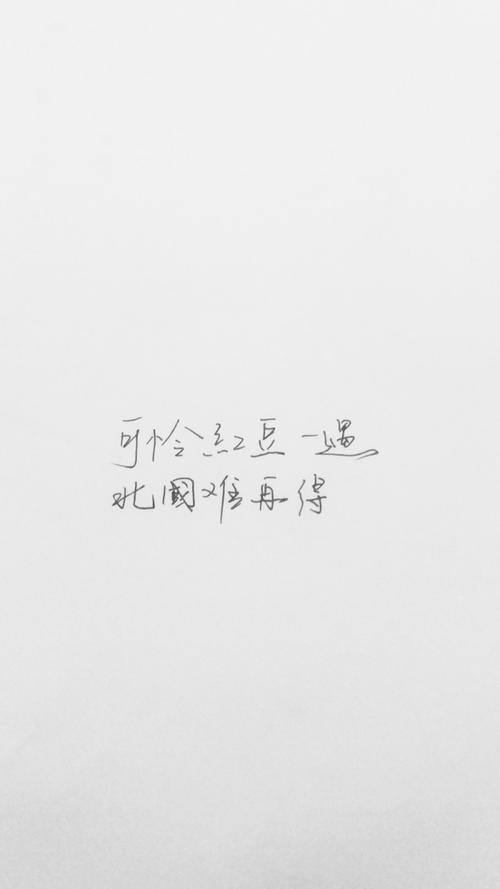 可怜红豆一遇
北國难再得